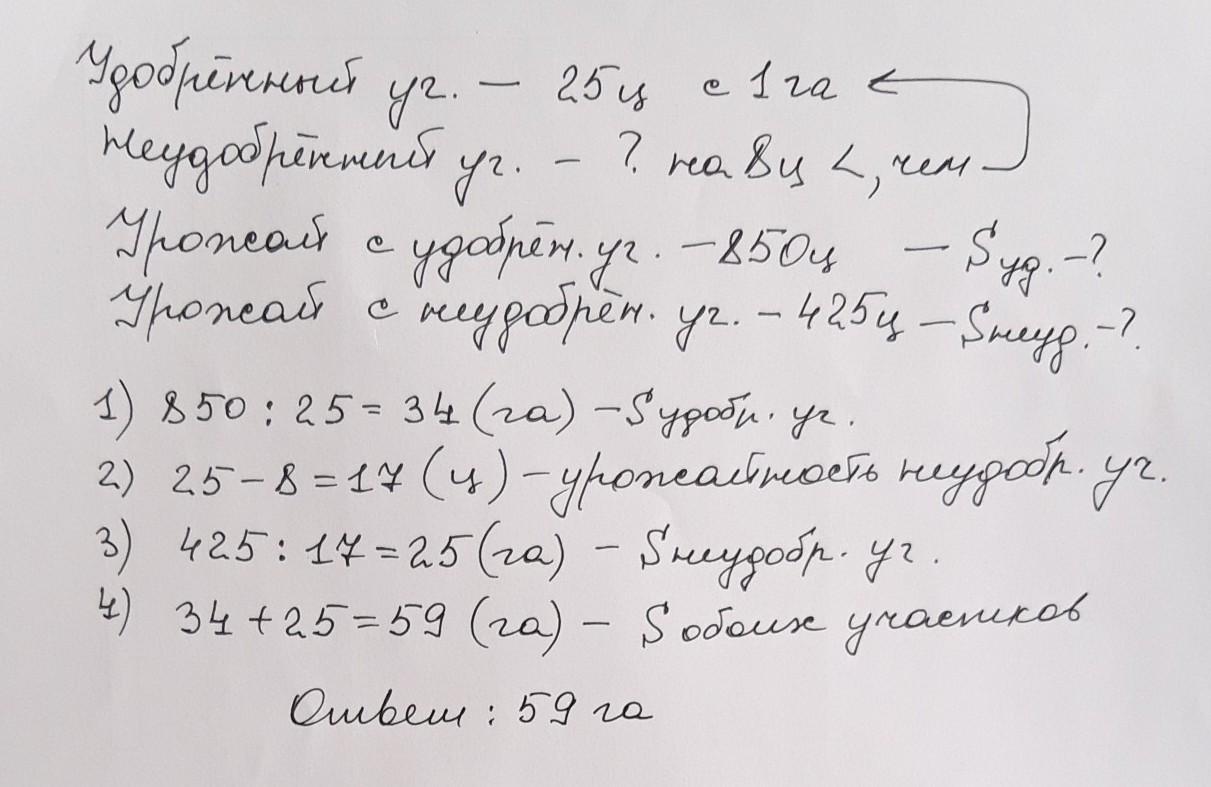 Удобрённый уг. – 25ц с 1 га
Неудобрённый уг. – ? на 8ц <, чем
Урожай с удобрён. уг. – 850ц – Sуд. – ?
Урожай с неудобрён. уг. – 425ц – Sнеуд. – ?
1) 850 : 25 = 34 (га) – Sудобр. уг.
2) 25 – 8 = 17 (ц) – урожайность неудобр. уг.
3) 425 : 17 = 25 (га) – Sнеудобр. уг.
4) 34 + 25 = 59 (га) – S обоих участков
Ответ : 59 га